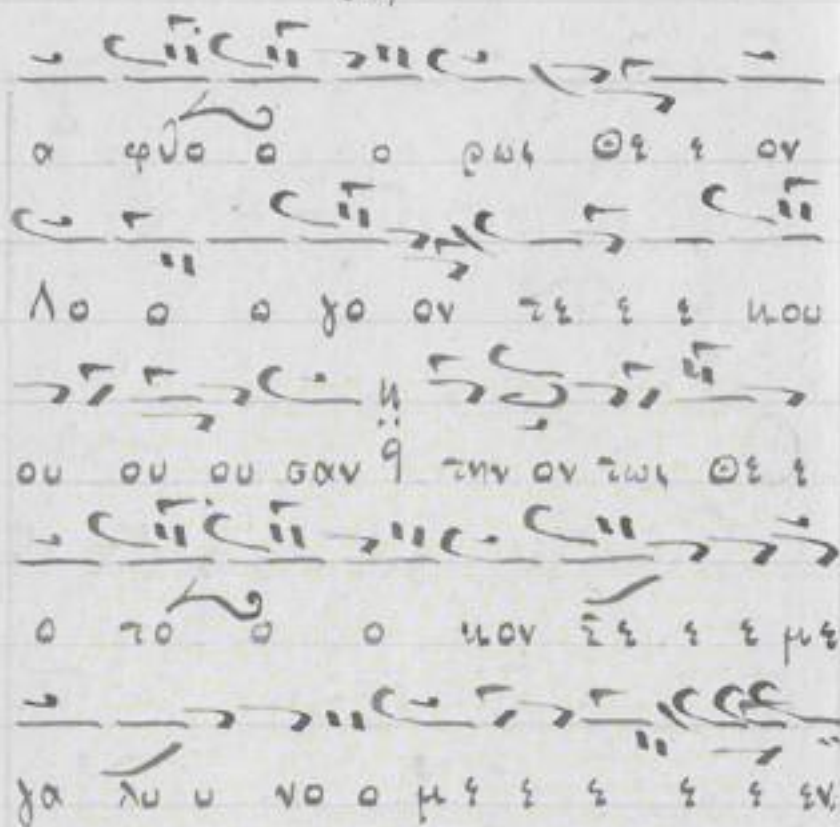 α φθο ο ο ρως Θε ε ον
λο ο ο γο ον τε ε ε κου
ου ου ου σαν την ον τως Θε ε
ο το ο ο κον σε ε ε ε με
γα λυ υ νο ο με ε ε ε ε εν